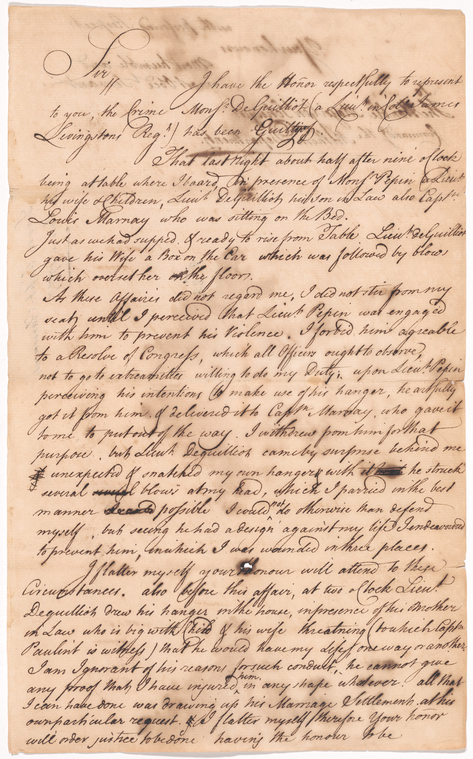 Sir
I have the Honor respectfully to represent
to you, the Crime Monsr. DeGuilliot (a Lieut. in Collo. James
Livingstons Regt.) has been Guilty
That last Night about half after nine o Clock
being at table where I board, in presence of Monsr. Pepin a Lieut.
his wife & Children, Lieut. DeGuilliot, his son in Law also Captn.
Louis Marnay who was sitting on the Bed.
Just as we had supped, & ready to rise from Table Lieut. deGuilliot
gave his Wife a Box on the Ear which was followed by blows
which overset her on the floor.
As these Affaires did not regard me, I did not stir from my
seat, until I perceived that Lieut. Pepin was engaged
with him to prevent his Violence. I forbid him agreable
to a Resolve of Congress, which all Officers ought to observe,
not to go to extreamities willing to do my Duty; upon Lieut. Pepin
perceiving his intentions to make use of his hanger, he artfully
got it from him & delivered it to Captn. Marnay, who gave it
to me to put out of the way. I withdrew from him for that
purpose, but Lieut. Deguilliot came by surprise behind me
unexpected & snatched my own hanger, with he struck
several blows at my head, which I parried in the best
manner possible I could not do otherwise than defend
myself, but seeing he had a design against my life I endeavoured
to prevent him, in which I was wounded in three places.
I flatter myself your Honour will attend to these
Circumstances. also before this affair, at two o Clock Lieut.
Deguilliot drew his hanger in the house, in presence of his Brother
in Law who is big with Child & his wife threatning (to which Captn.
Paulint is witness) that he would have my Life, one way or another
I am Ignorant of his reasons for such conduct, he cannot give
any proof that I have injured him in any shape whatever: all that
I can have done was drawing up his Marriage Settlement, at his
own particular request. I flatter myself therefore Your honor
will order justice to be done having the honour to be